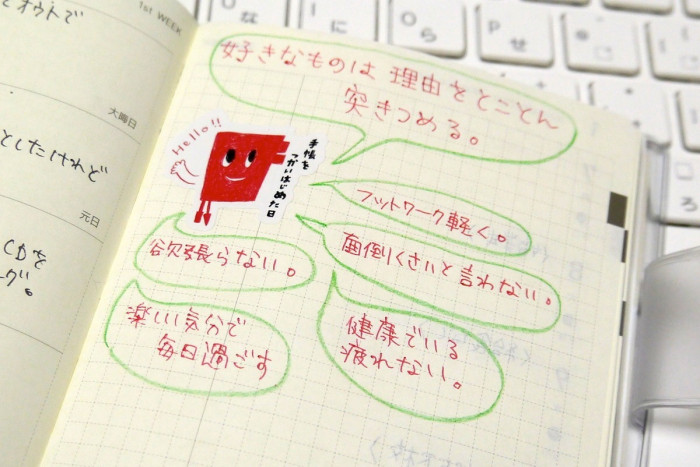 とオウトで
1st WEEK
大晦日
としたけれど
元日
CDを
好きなものは 理由をとことん
突きつめる。
Hello!!
手帳を
つかいはじめた日
フットワーク軽く。
欲張らない。
面倒くさいと言わない。
楽しい気分で
毎日過ごす
健康でいる
疲れない。
な
に
O
ら
P
せ